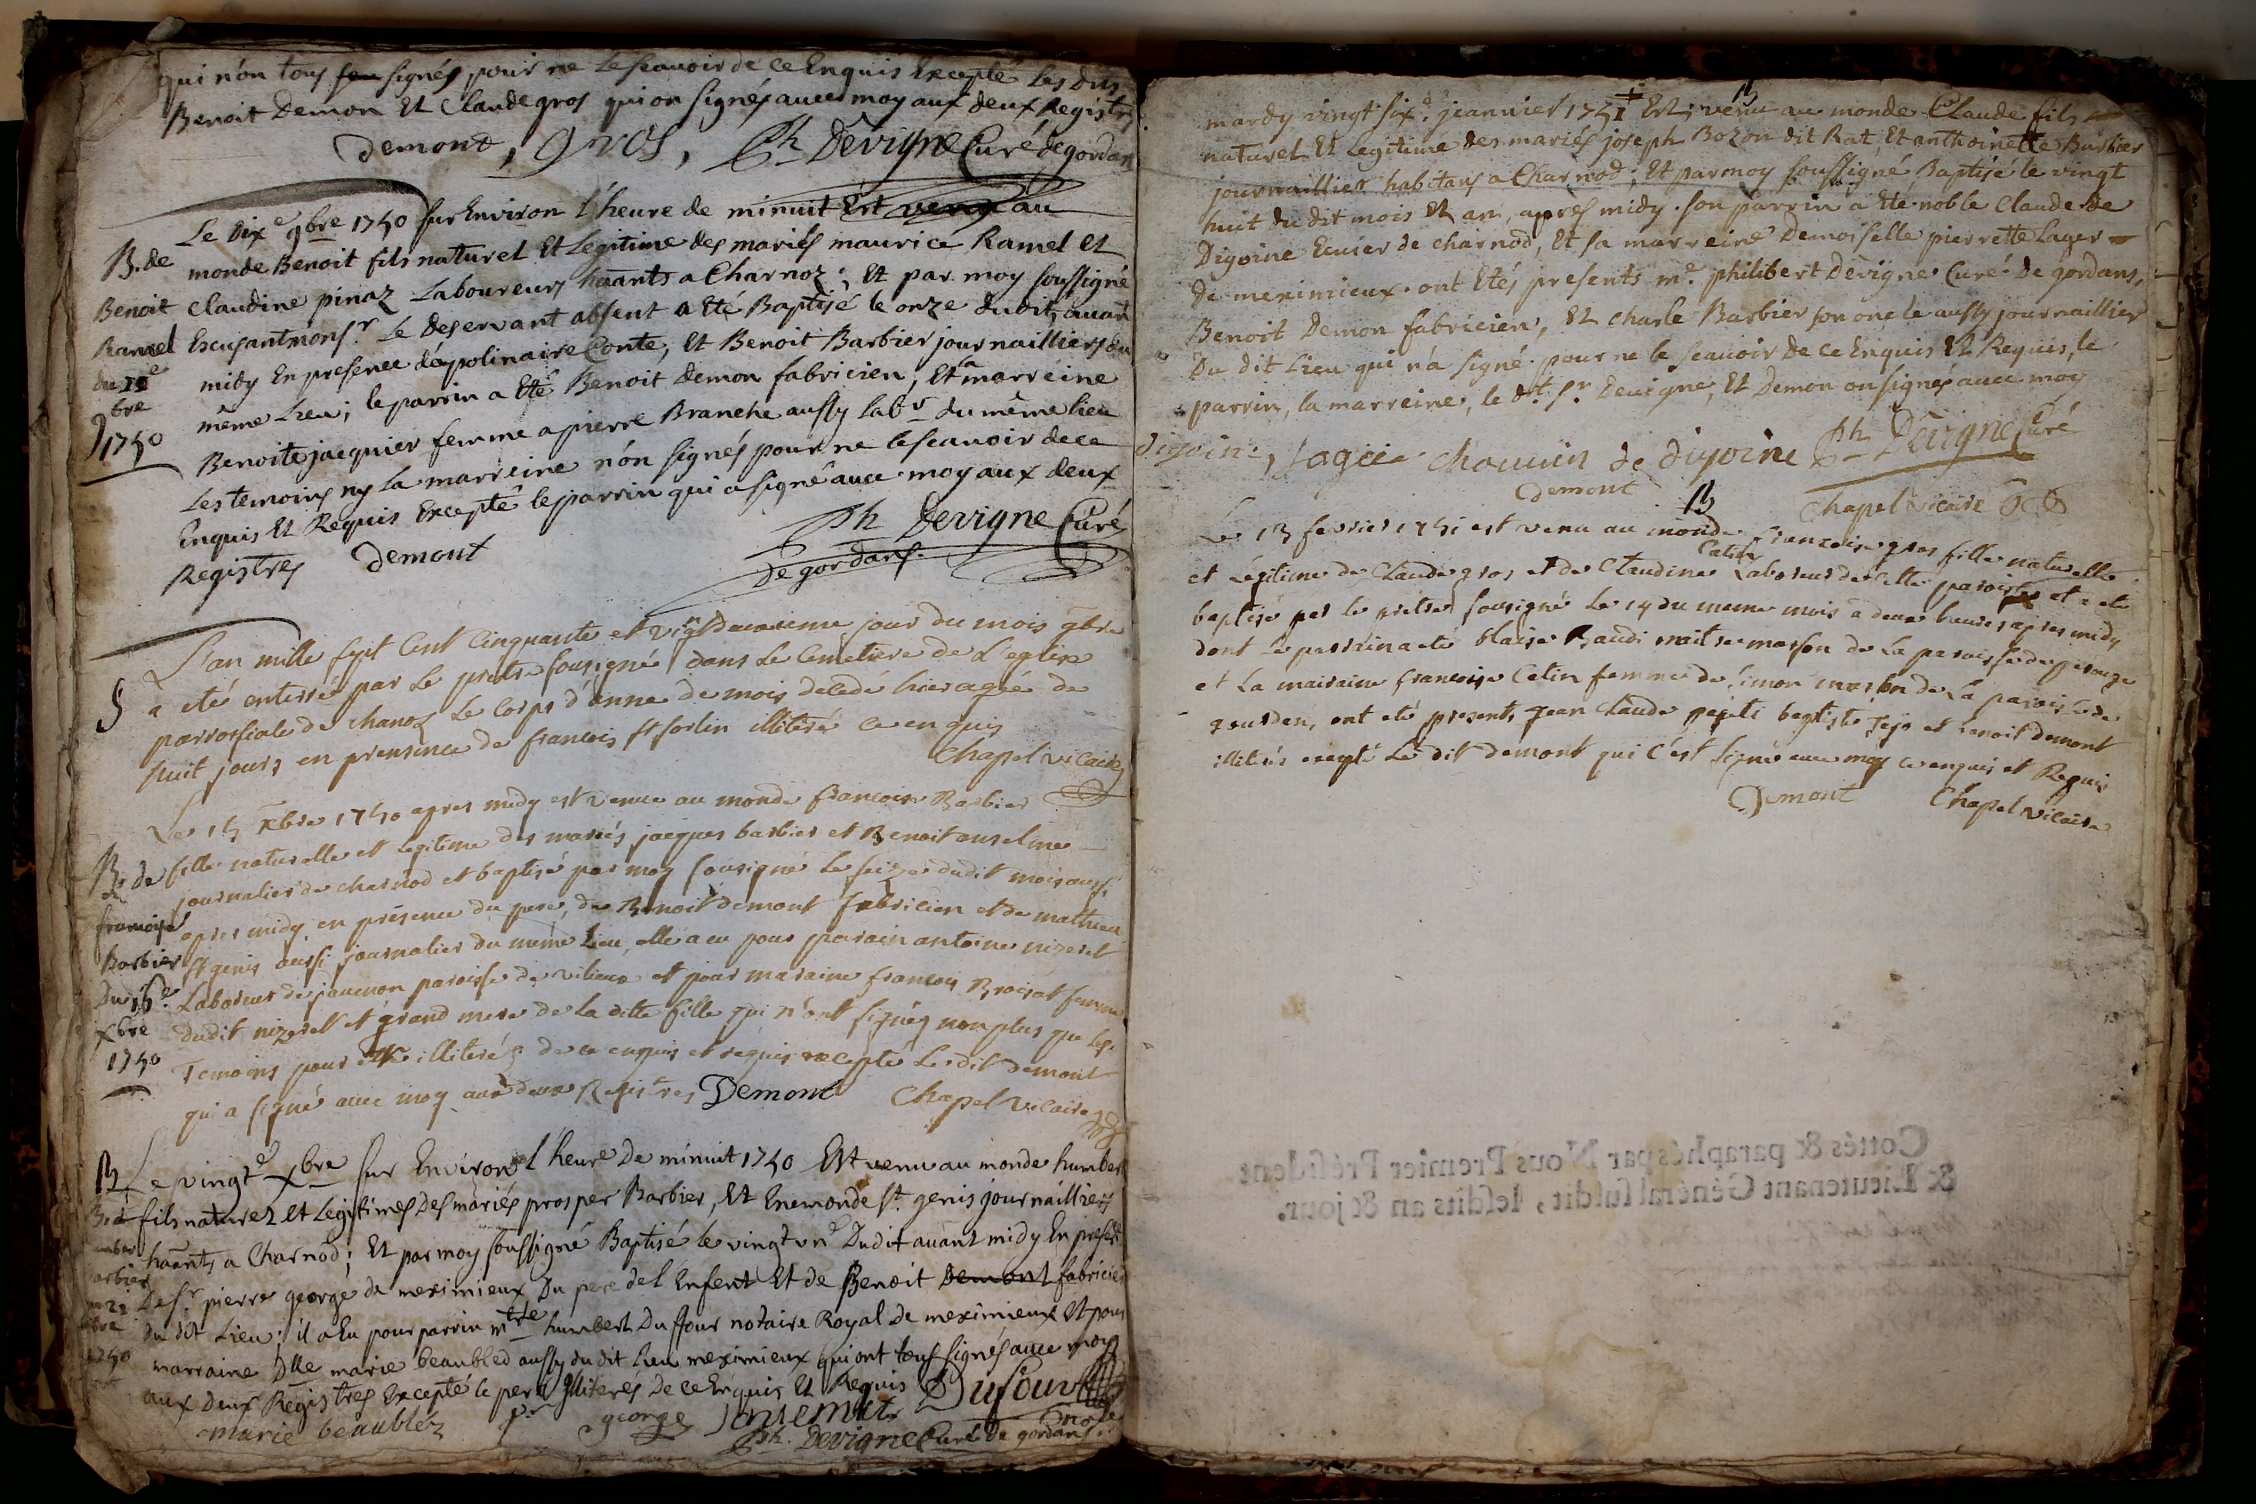 qui n'on tous signés pour ne le scauoir de ce Enquis Excepté les dits
Benoit Demon Et Claude gros qui on signés auec moy aux deux Registres
demont, gros, Ph Devigne Curé de gordans
B. de
Benoit
Ramel
du 11e
9bre
1750
Le Dixe 9bre 1750 sur Environ l'heure de minuit Est venu au
monde Benoit fils naturel Et Legitime des mariés maurice Ramel Et
Claudine pinaz Laboureurs haants a Charnoz; Et par moy soussigné
Excusant monsr le Deservant absent a Eté Baptisé le onze dudit, auant
midy En presence d'apolinaire Conte, Et Benoit Barbier journailliers du
même Lieu; le parrin a Eté Benoit Demon fabricien, Et la marreine
Benoite jacquier femme a pierre Branche aussy labr du même lieu
Les temoins ny La marreine n'on signés pour ne le scauoir de ce
Enquis Et Requis Excepté le parrin qui a signé auec moy aux deux
Registres demont Ph Devigne Curé
de gordans
S
L'an mille sept Cent Cinquante et vingt jour du mois 9bre
a eté enterré par Le pretre sousigné dans Le Cemetiere de L'eglise
parrossiale de Chanoz Le Corps d'anne de mois decedé hier agée de
huit jours en prensence de francois st forlin illiteré ce enquis
Chapel vicaire
B. de
francoise
Barbier
Du 16e
xbre
1750
Le 15 xbre 1750 apres midy est venue au monde francoise Barbier
fille naturelle et legitime des mariés jacques barbier et Benoit anselme
journalier de charnod et baptisé par moy sousigné le seize dudit mois aussi
apres midy en présence du pere, de Benoit demont fabricien et de mathieu
st genis aussi journalier du meme Lieu, elle a eu pour parain antoine nizeret
Laboreur de paroisse de vilieux et pour maraine francois femme
dudit nizeret et grand mere de la ditte fille qui n'ont signés non plus que les
Temoins pour etre illiterés de ce enquis et requis excepté Le dit demont
qui a signé auec moy aux deux Registres Demont Chapel vicaire
B
Le vingte xbre sur Environ l'heure De minuit 1750 Est venu au monde humbert
fils naturel et Legitimes Des mariés prosper Barbier, Et Enemonde st genis journailliers
haants a Charnod; Et par moy soussigné Baptisé le vingt une Dudit auant midy En presence
De sr pierre george de meximieux Du pere de l'Enfent Et de Benoit Demont fabricien
du dit Lieu; il a Eu pour parrin mtre humbert Duffour notaire Royal de meximieux Et pour
marraine Dlle marie beaubled aussy du dit Lieu meximieux qui ont tous signés auec moy
aux deux Registres Excepté le pere Illiterés De ce Enquis Et Requis Dufour
marie beaublez pr george demont
Ph. Devigne Curé De gordans
B
mardy vingt sixe jeanuier 1751 Est venu au monde Claude fils
naturel Et Legitime des mariés joseph Bozon dit Rat, Et anthoinette Barbier
journaillier habitans a Charnod; Et par moy soussigné Baptisé le vingt
huit du dit mois Et an, apres midy. son parrin a Eté noble Claude de
Digoine Ecuier de charnod, Et sa marreine Demoiselle pierrette Lager
De meximieux. ont Etés presents me philibert Devigne Curé De gordans,
Benoit Demon fabricien, Et charle Barbier son oncle aussy journaillier
Du dit Lieu qui n'a signé pour ne le scauoir De ce Enquis Et Requis, le
parrin, la marreine, le dt sr Deuigne, Et Demon on signés auec moy
digoine, Lager chouuin de digoine Ph Devigne Curé
demont Chapel vicaire
B
Le 13 fevrier 1751 est venu au monde francoise gros fille naturelle
et Légitime de Claude gros et de Claudine Catin Laboreur de cette paroisse et a eté
baptisé par le pretre sousigné Le 14 du meme mois a deux heures apres midy
dont Le parrain a eté blaise Baudi maitre masson de La paroisse de perouge
et La mairaine francoise Catin femme de simon masson de La paroisse de
gourdan, ont eté presents Jean Claude baptiste et benoit demont
illiterés excepté Le dit demont qui c'est signé auec moy ce enquis et Requis
Demont Chapel vicaire
Cottés & paraphés par Nous Premier Président
& Lieutenant Général susdit, lesdits an & jour.